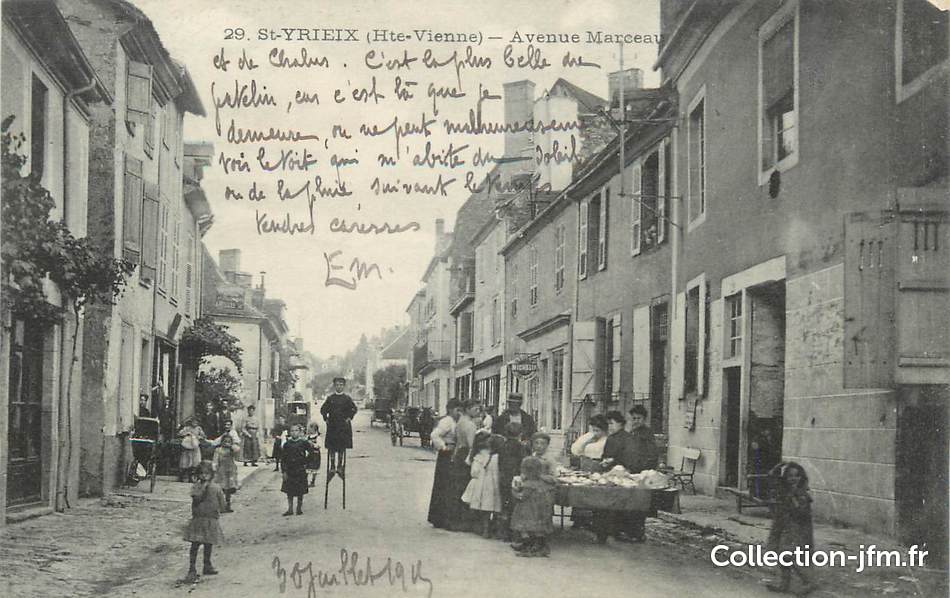 29. St-YRIEIX (Hte-Vienne) — Avenue Marceau
et de Chalus. C'est la plus belle de
car c'est là que je
demeure, ou ne peut malheureusem
voir le toit qui m'abite du soleil
ou de la pluie, suivant le temps
tendres caresses
Em.
MICHELIN
30 juillet 191
Collection-jfm.fr